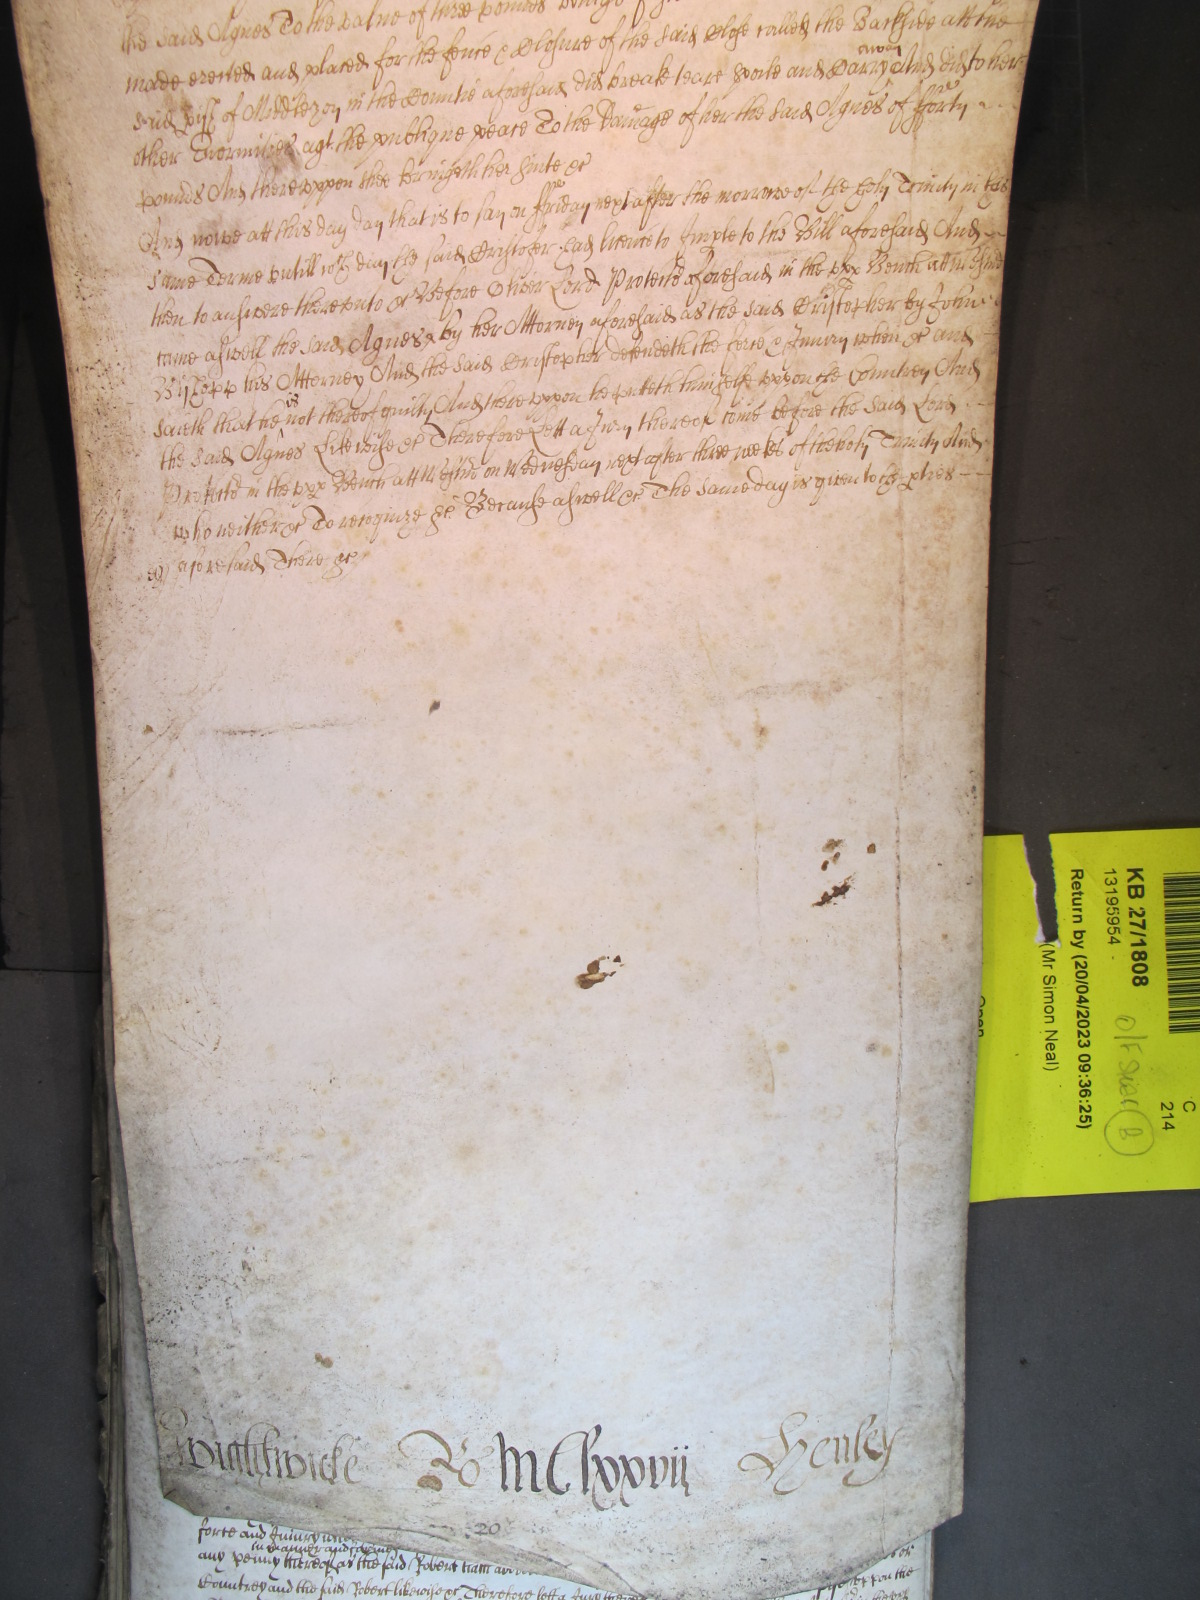 the said Agnes To the value of three pounds
made erected and placed for the fence & Closure of the said Close called the Backside att the
said pish of Middlezoy in the Countie aforesaid did break teare spoile and Carry away And did to her
other Enormities agt the publique peace To the Damage of her the said Agnes of fforty
pounds And thereuppon shee bringeth her suite &c
And nowe att this day that is to say on ffriday next after the morrowe of the holy Trinity in this
same Terme untill wch day the said Cristofer had licence to Imple to the Bill aforesaid And
then to answere thereunto &c Before Oliver Lord Protector aforesaid in the upp Bench att
came aswell the said Agnes by her Attorney aforesaid as the said Cristopher by John
his Attorney And the said Cristopher defendeth the force & Iniury when &c and
saieth that he is not thereof guilty And thereuppon he putteth himselfe uppon the Countrey And
the said Agnes Likewise &c Therefore Lett a Jury thereof come before the said Lord
Protector in the upp Bench att Westmr on Wednesday next after three weekes of the holy Trinity And
who neither &c To recognize &c Because aswell &c The same day is given to the pties
aforesaid There &c
Wightwicke Ro mClxxvii Henley
20
force and Iniury when
in manner and forme
any penny thereof as the said Robert hath
Countrey and the said Robert likewise &c Therefore lett a Jury
uppon the
KB 27/1808
13195954
Return by (20/04/2023 09:36:25)
(Mr Simon Neal)
Open
C
214
O/F
B